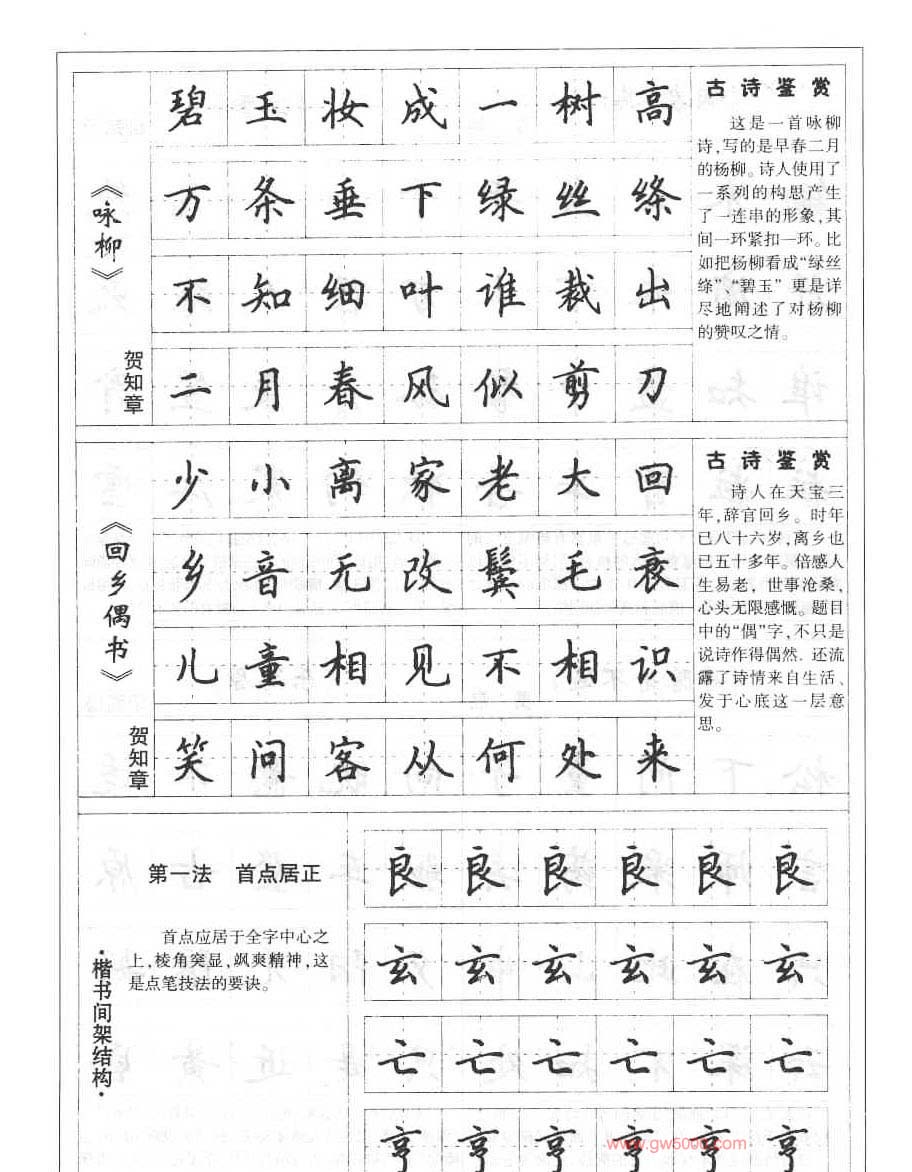 《咏柳》
贺知章
碧玉妆成一树高
万条垂下绿丝绦
不知细叶谁裁出
二月春风似剪刀
古诗鉴赏
这是一首咏柳
诗,写的是早春二月
的杨柳。诗人使用了
一系列的构思产生
了一连串的形象,其
间一环紧扣一环。比
如把杨柳看成“绿丝
绦”、“碧玉” 更是详
尽地阐述了对杨柳
的赞叹之情。
《回乡偶书》
贺知章
少小离家老大回
乡音无改鬓毛衰
儿童相见不相识
笑问客从何处来
古诗鉴赏
诗人在天宝三
年,辞官回乡。时年
已八十六岁,离乡也
已五十多年。倍感人
生易老, 世事沧桑,
心头无限感慨。题目
中的“偶”字,不只是
说诗作得偶然. 还流
露了诗情来自生活、
发于心底这一层意
思。
·楷书间架结构·
第一法 首点居正
首点应居于全字中心之
上,棱角突显,飒爽精神,这
是点笔技法的要诀。
良良良良良良
玄玄玄玄玄玄
亡亡亡亡亡亡
亨亨亨亨亨亨
www.gw5000.com